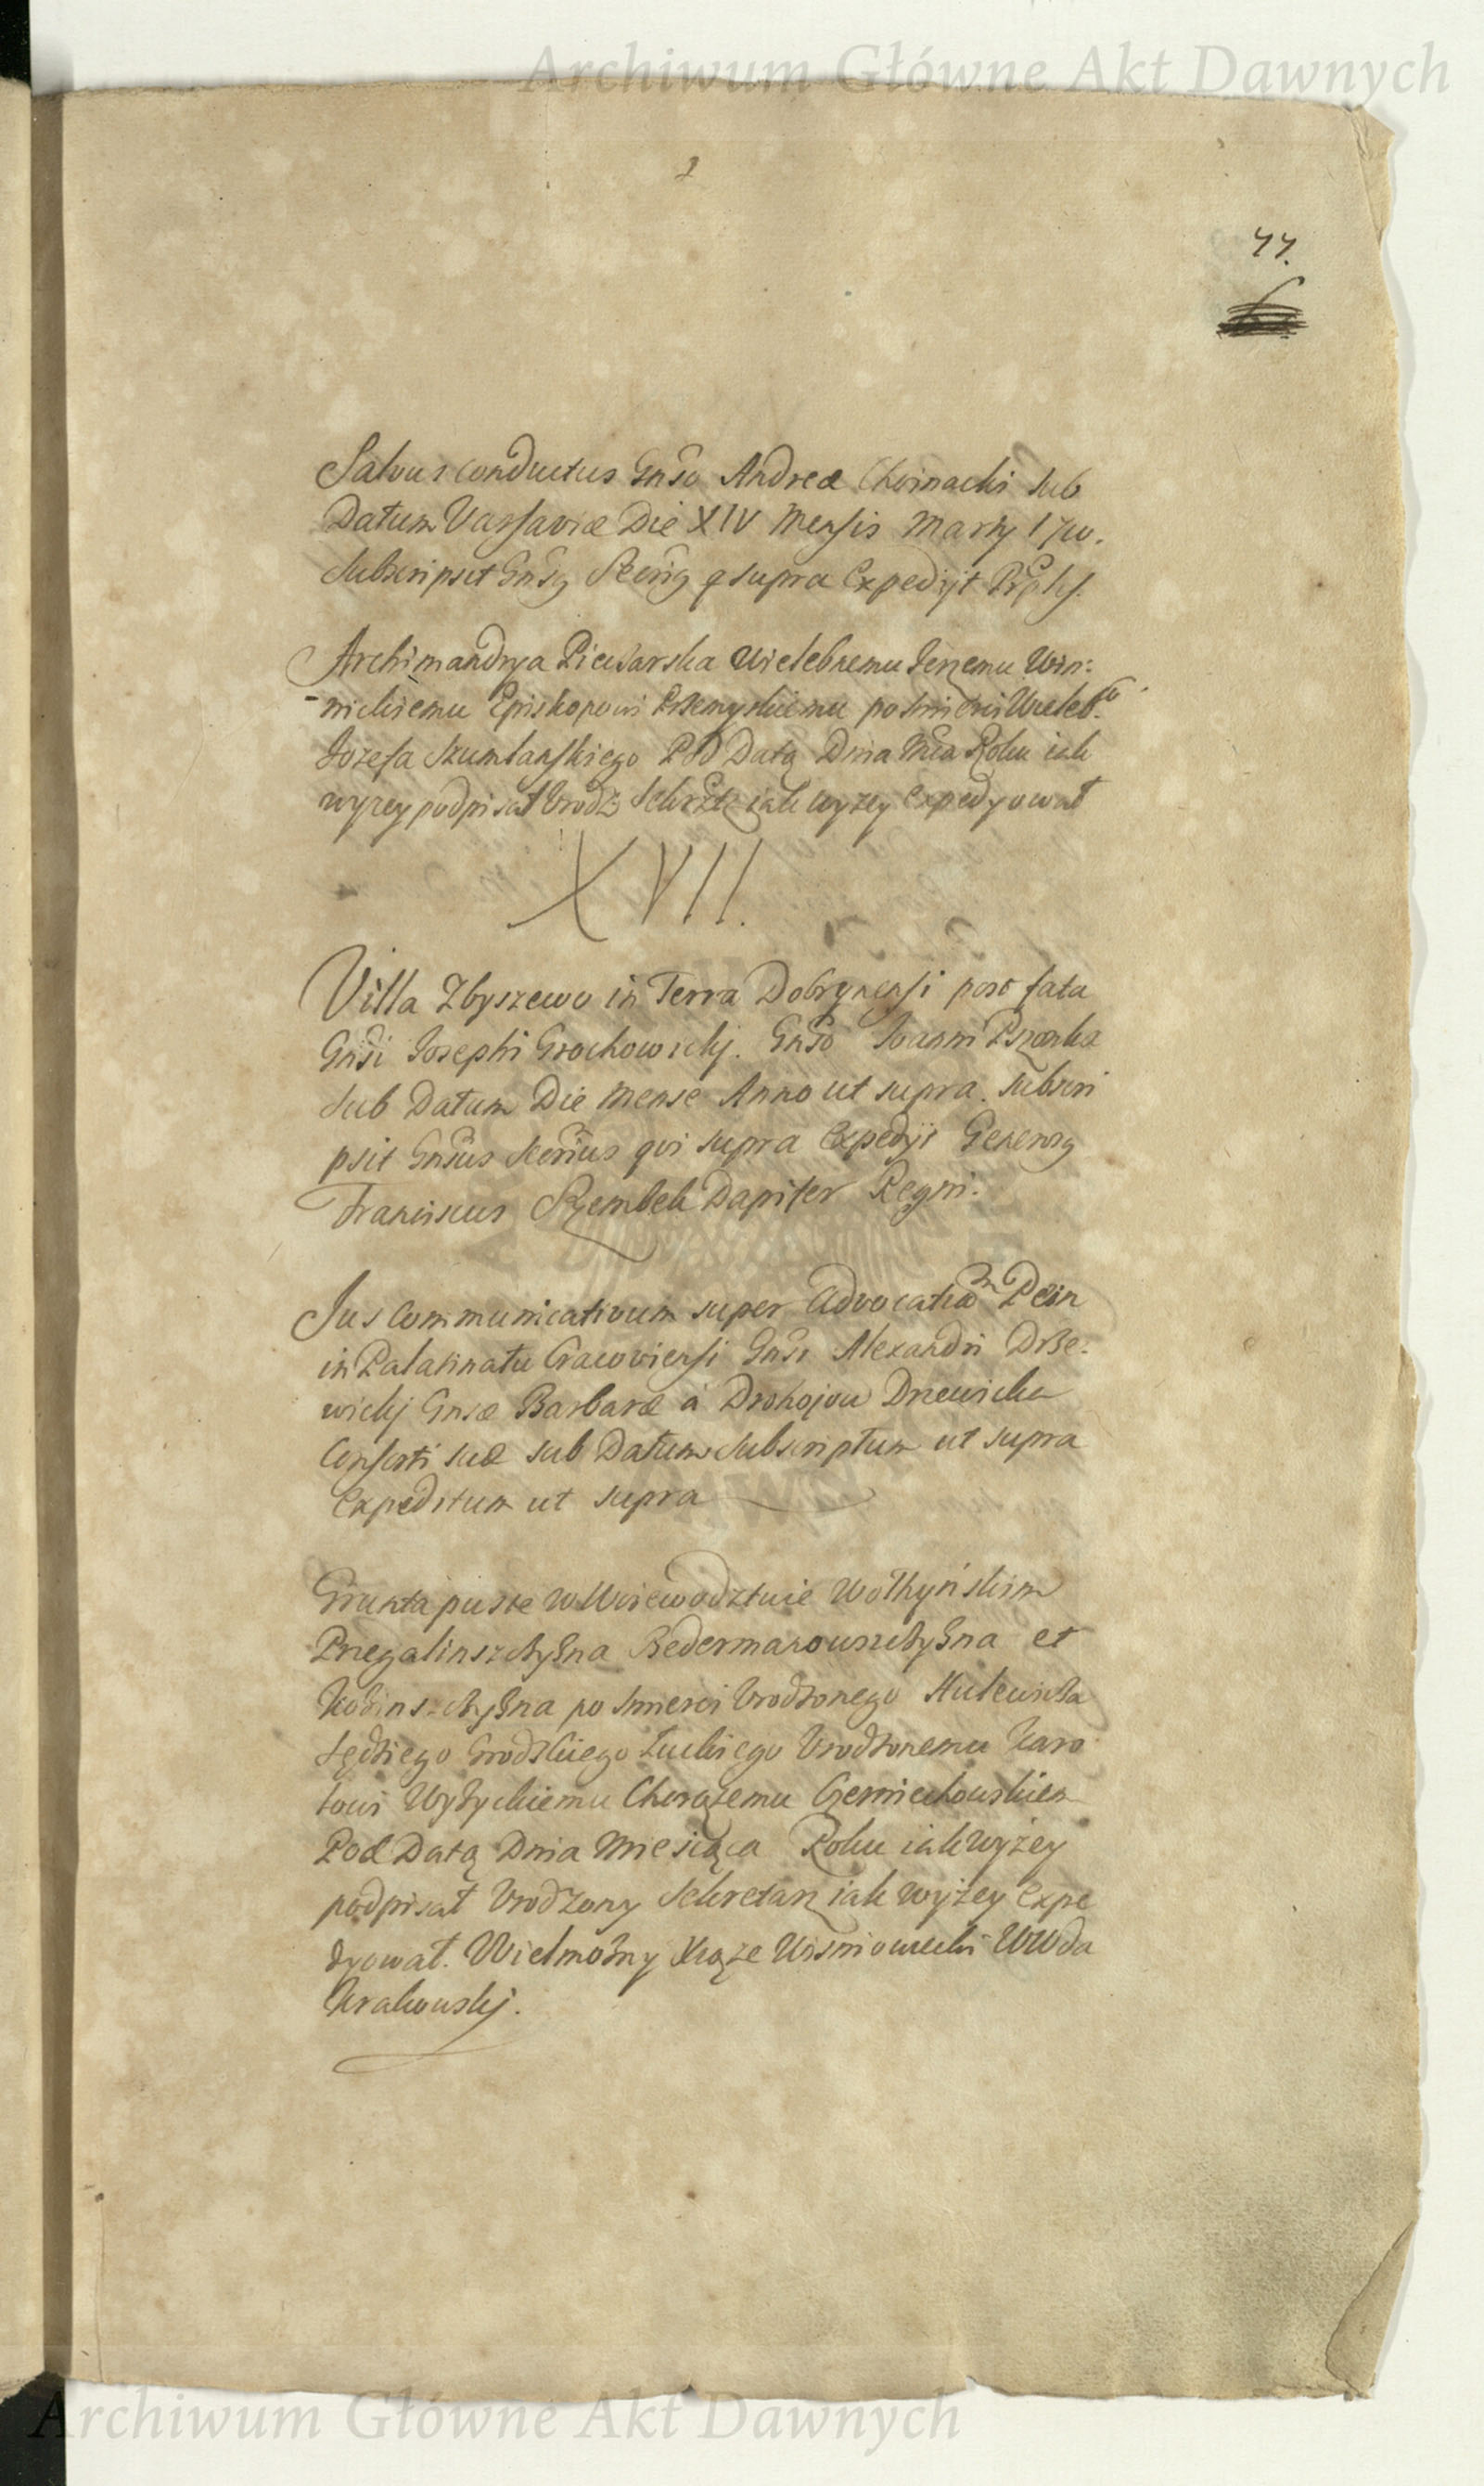 Archiwum Główne Akt Dawnych
77.
Salvus conductus Gnso Andreæ Choinacki sub
Datum Varsaviæ Die XIV Mensis Martij 1710.
Subscripsit supra Expedijt
Archimandrya Pieczarska Wielebnemu Jerzemu Win:
nickiemu Episkopowi Przemyskiemu po śmierci Wieleb:go
Jozefa Szumlanskiego Pod Datą Dnia Mca Roku iak
wyzey podpisał Urodz: Sekretz iak wyzey Expedyował
XVII.
Villa Zbyszewo in Terra Dobrynensi post fata
Gnsi Josephi Grochowickj. Gnso Joanni Pszonka
sub Datum Die Mense Anno ut supra. Subscri
psit Gnsus Secrius qui supra Expedijt Generosg
Franciscus Szembek Dapifer Regni.
Jus Communicativum super Advocatiam Pcin
in Palatinatu Cracoviensi Gnsi Alexandri Drze:
wickj Gnsæ Barbaræ à Drohojow Drzewicka
Consorti suæ sub Datum Subscriptum ut supra
Expeditum ut supra
Grunta puste w Woiewodztwie Wołhyńskim
Przegalinszczyzna Bedermanowszczyzna et
Kodinszczyzna po śmierci Urodzonego Hulewicza
Sędziego Grodzkiego Łuckiego Urodzonemu Karo
lowi Wyżyckiemu Chorążemu Czerniechowskiem
Pod Datą Dnia Miesiąca Roku iak wyżey
podpisał Urodzony Sekretarz iak wyżey Expe
dyował. Wielmożny Xiąże Wisniowiecki WWda
Krakowskj.
Archiwum Główne Akt Dawnych